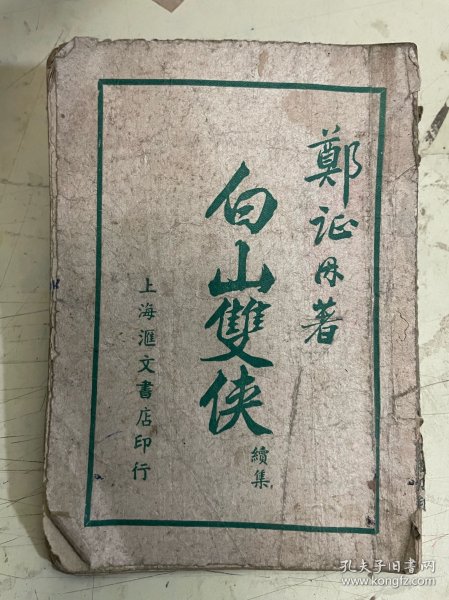 鄭証因著
白山雙俠
續集
上海滙文書店印行
孔夫子旧书网
www.kongfz.com